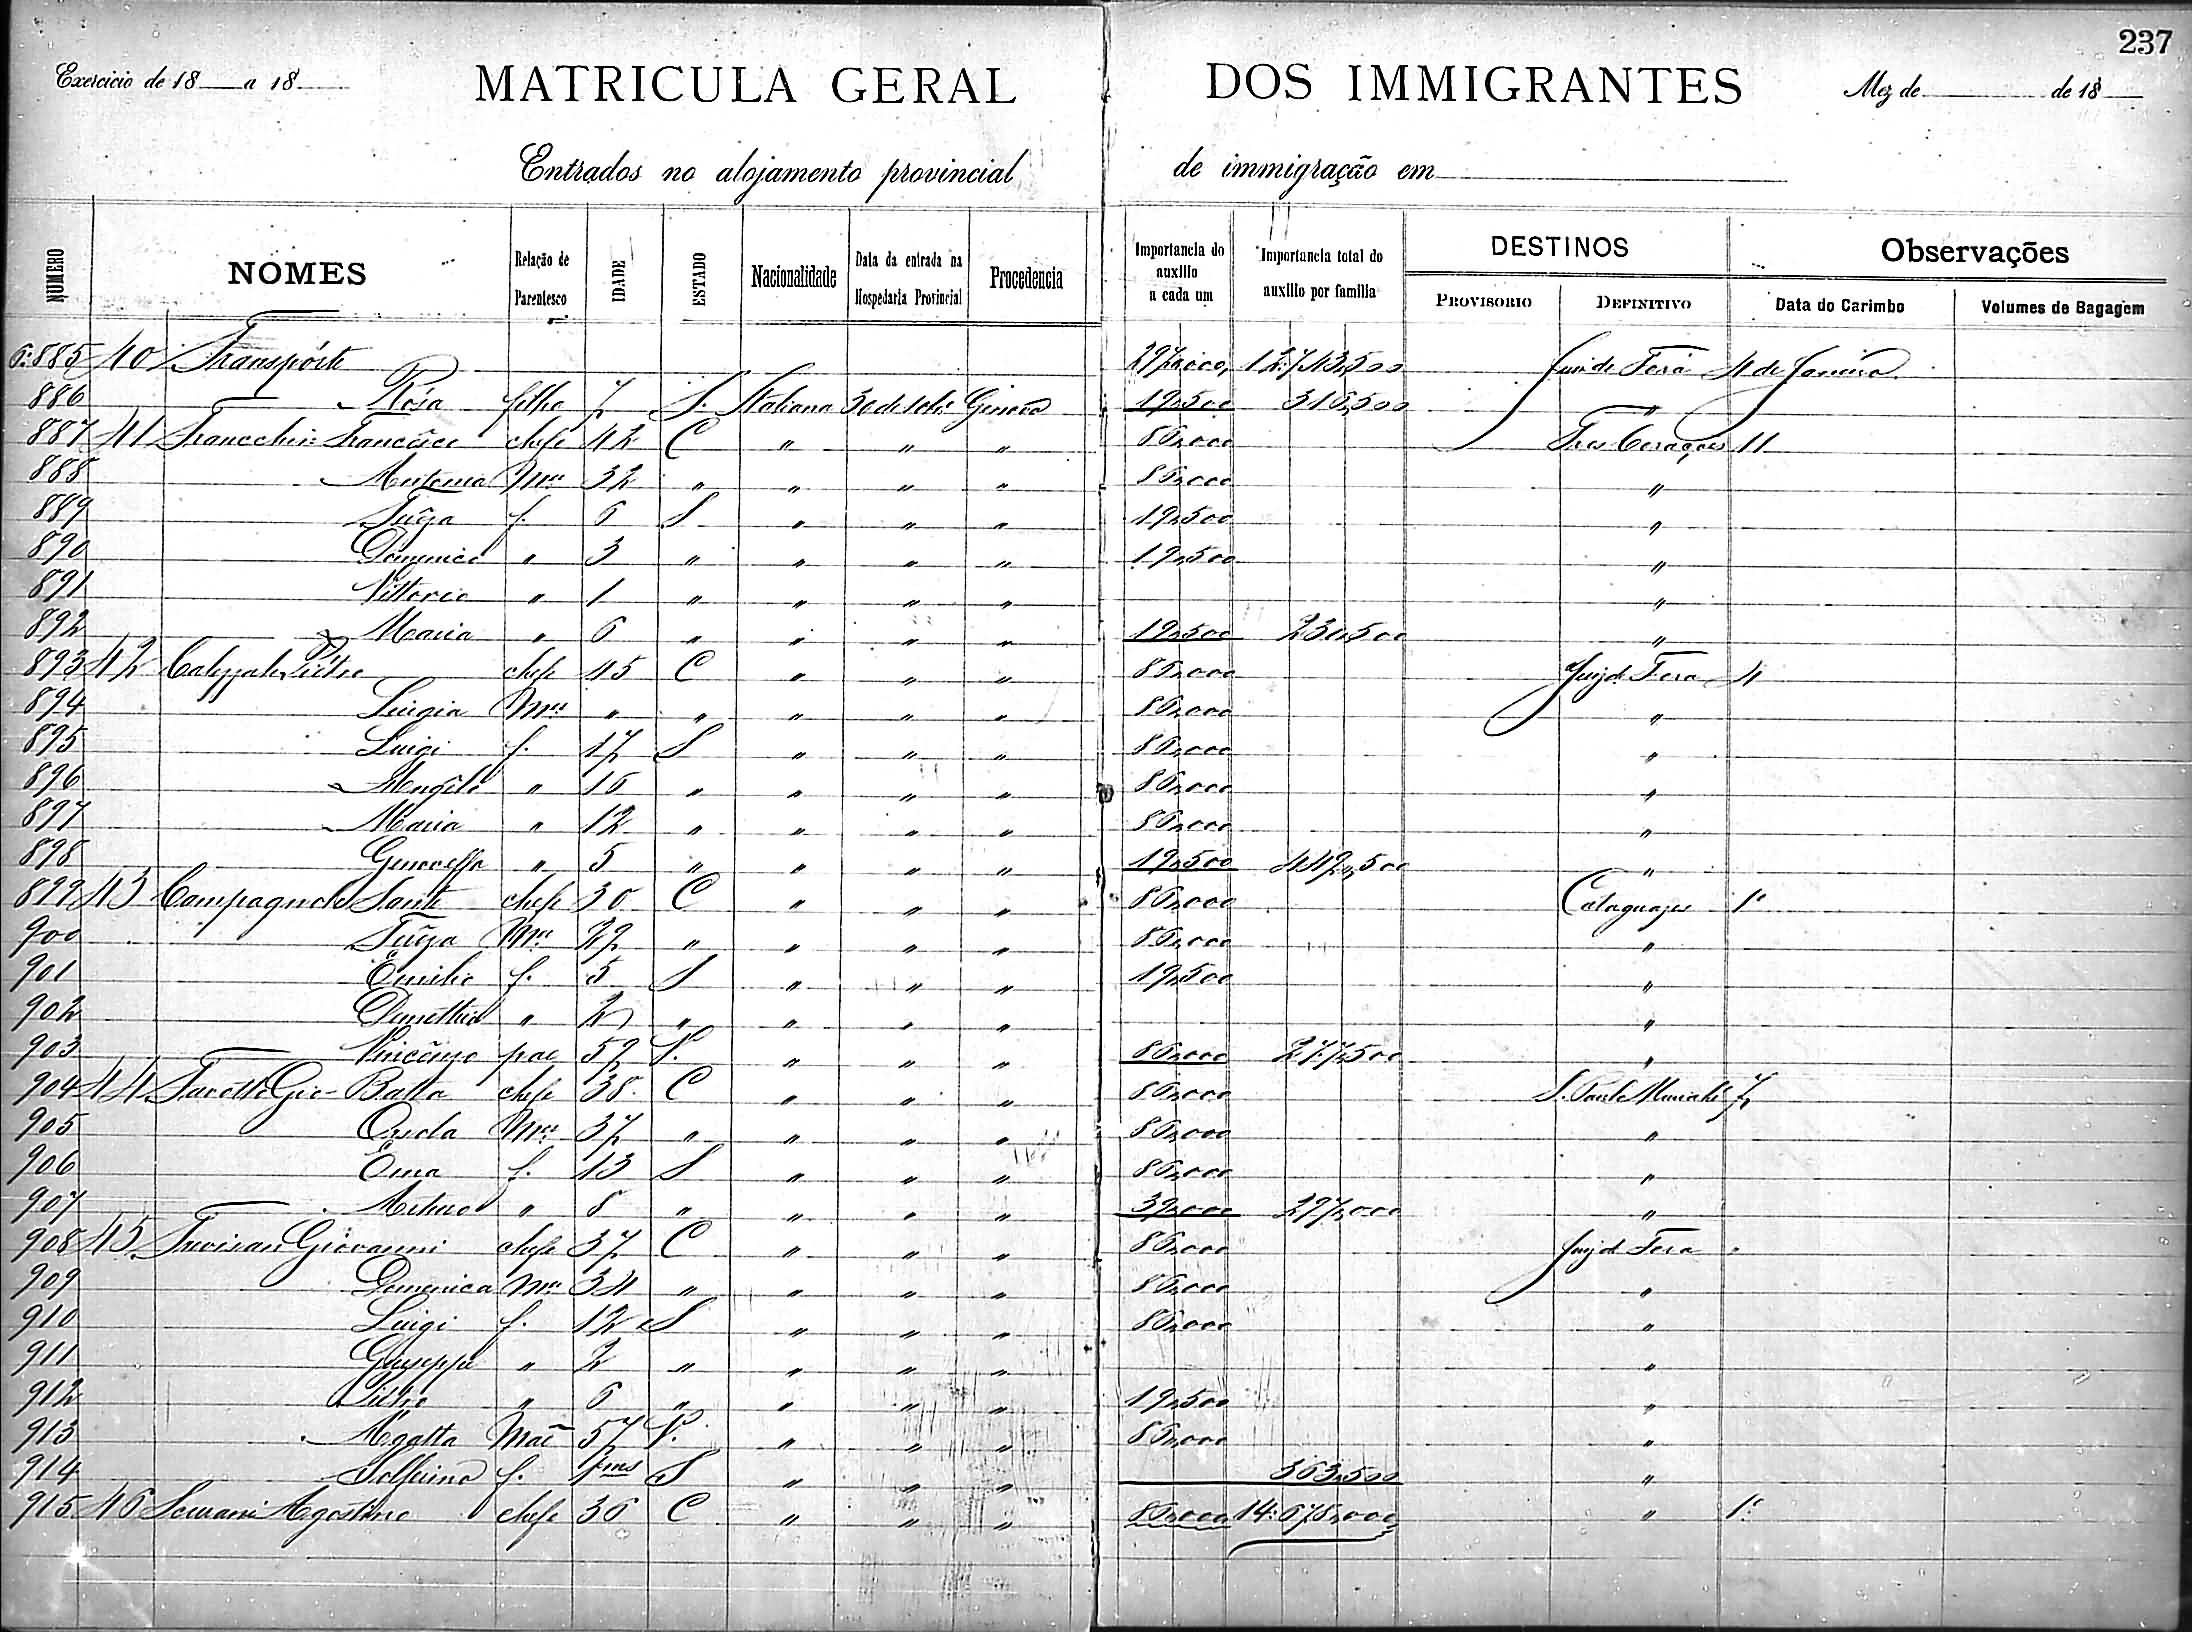 237
Exercicio de 18 a 18
MATRICULA GERAL DOS IMMIGRANTES
Mez de de 18
Entrados no alojamento provincial de immigração em
NUMERO NOMES Relação de Parentesco IDADE ESTADO Nacionalidade Data da entrada na Hospedaria Provincial Procedencia Importancia do auxilio a cada um Importancia total do auxilio por familia DESTINOS PROVISORIO DEFINITIVO Observações Data do Carimbo Volumes de Bagagem
885 40 Transporte 297,000 12:743,500 4 de Janeiro
886 Rosa filha 7 S. Italiana Genova 19,500 316,500 "
887 41 Francesco chefe 42 C " " " 86,000 Tres Corações 11
888 Antonia Mer 32 " " " " 86,000 "
889 f. 6 S " " " 19,500 "
890 Domenico " 3 " " " " 19,500 "
891 Vittorio " 1 " " " " "
892 Maria " 6 " " " " 19,500 230,500 "
893 42 Pietro chefe 45 C " " " 86,000 Juiz de Fora 4
894 Luigia Mer " " " " " 86,000 "
895 Luigi f. 17 S " " " 86,000 "
896 " 16 " " " " 86,000 "
897 Maria " 12 " " " " 86,000 "
898 " 5 " " " " 19,500 449,500 "
899 43 Campagnolo Sante chefe 30 C " " " 86,000 Cataguazes 1º
900 Mer 29 " " " " 86,000 "
901 Emilio f. 5 S " " " 19,500 "
902 " 2 " " " " "
903 Vincenzo pae 59 V. " " " 86,000 277,500 "
904 44 Gio-Batta chefe 38 C " " " 86,000 S. Paulo Muriahé 7
905 Mer 37 " " " " 86,000 "
906 Ema f. 13 S " " " 86,000 "
907 Arturo " 8 " " " " 39,000 297,000 "
908 45 Trevisan Giovanni chefe 37 C " " " 86,000 Juiz de Fora "
909 Domenica Mer 34 " " " " 86,000 "
910 Luigi f. 12 S " " " 86,000 "
911 Giuseppe " 2 " " " " "
912 Pietro " 6 " " " " 19,500 "
913 Agatta Mãe 57 V. " " " 86,000 "
914 f. S " " " 363,500 "
915 46 Agostino chefe 36 C " " " 86,000 14:678,000 " 1º